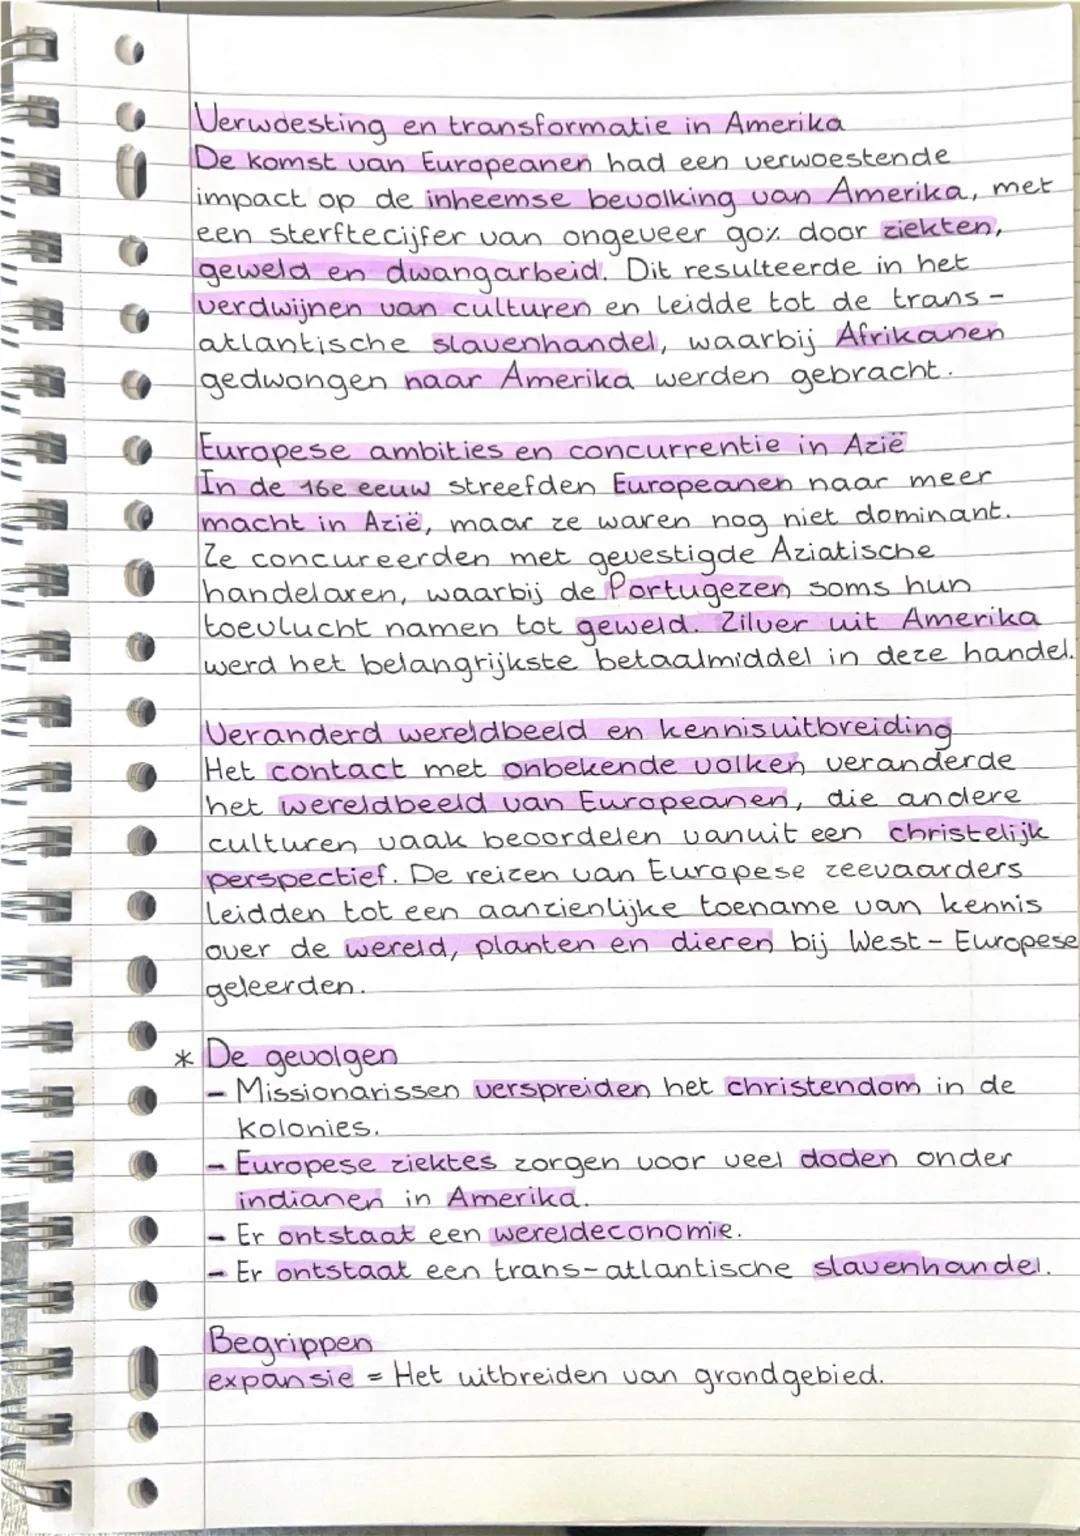 Verwoesting en transformatie in Amerika
De komst van Europeanen had een verwoestende
impact op de inheemse bevolking van Amerika, met
een sterftecijfer van ongeveer 90% door ziekten,
geweld en dwangarbeid. Dit resulteerde in het
verdwijnen van culturen en leidde tot de trans-
atlantische slavenhandel, waarbij Afrikanen
gedwongen naar Amerika werden gebracht.
Europese ambities en concurrentie in Azië
In de 16e eeuw streefden Europeanen naar meer
macht in Azië, maar ze waren nog niet dominant.
Ze concureerden met gevestigde Aziatische
handelaren, waarbij de Portugezen soms hun
toevlucht namen tot geweld. Zilver uit Amerika
werd het belangrijkste betaalmiddel in deze handel.
Veranderd wereldbeeld en kennisuitbreiding
Het contact met onbekende volken veranderde
het wereldbeeld van Europeanen, die andere
culturen vaak beoordelen vanuit een christelijk
perspectief. De reizen van Europese zeevaarders
leidden tot een aanzienlijke toename van kennis
over de wereld, planten en dieren bij West-Europese
geleerden.
* De gevolgen
- Missionarissen verspreiden het christendom in de
kolonies.
- Europese ziektes zorgen voor veel doden onder
indianen in Amerika.
- Er ontstaat een wereldeconomie.
- Er ontstaat een trans-atlantische slavenhandel.
Begrippen
expansie = Het uitbreiden van grondgebied.